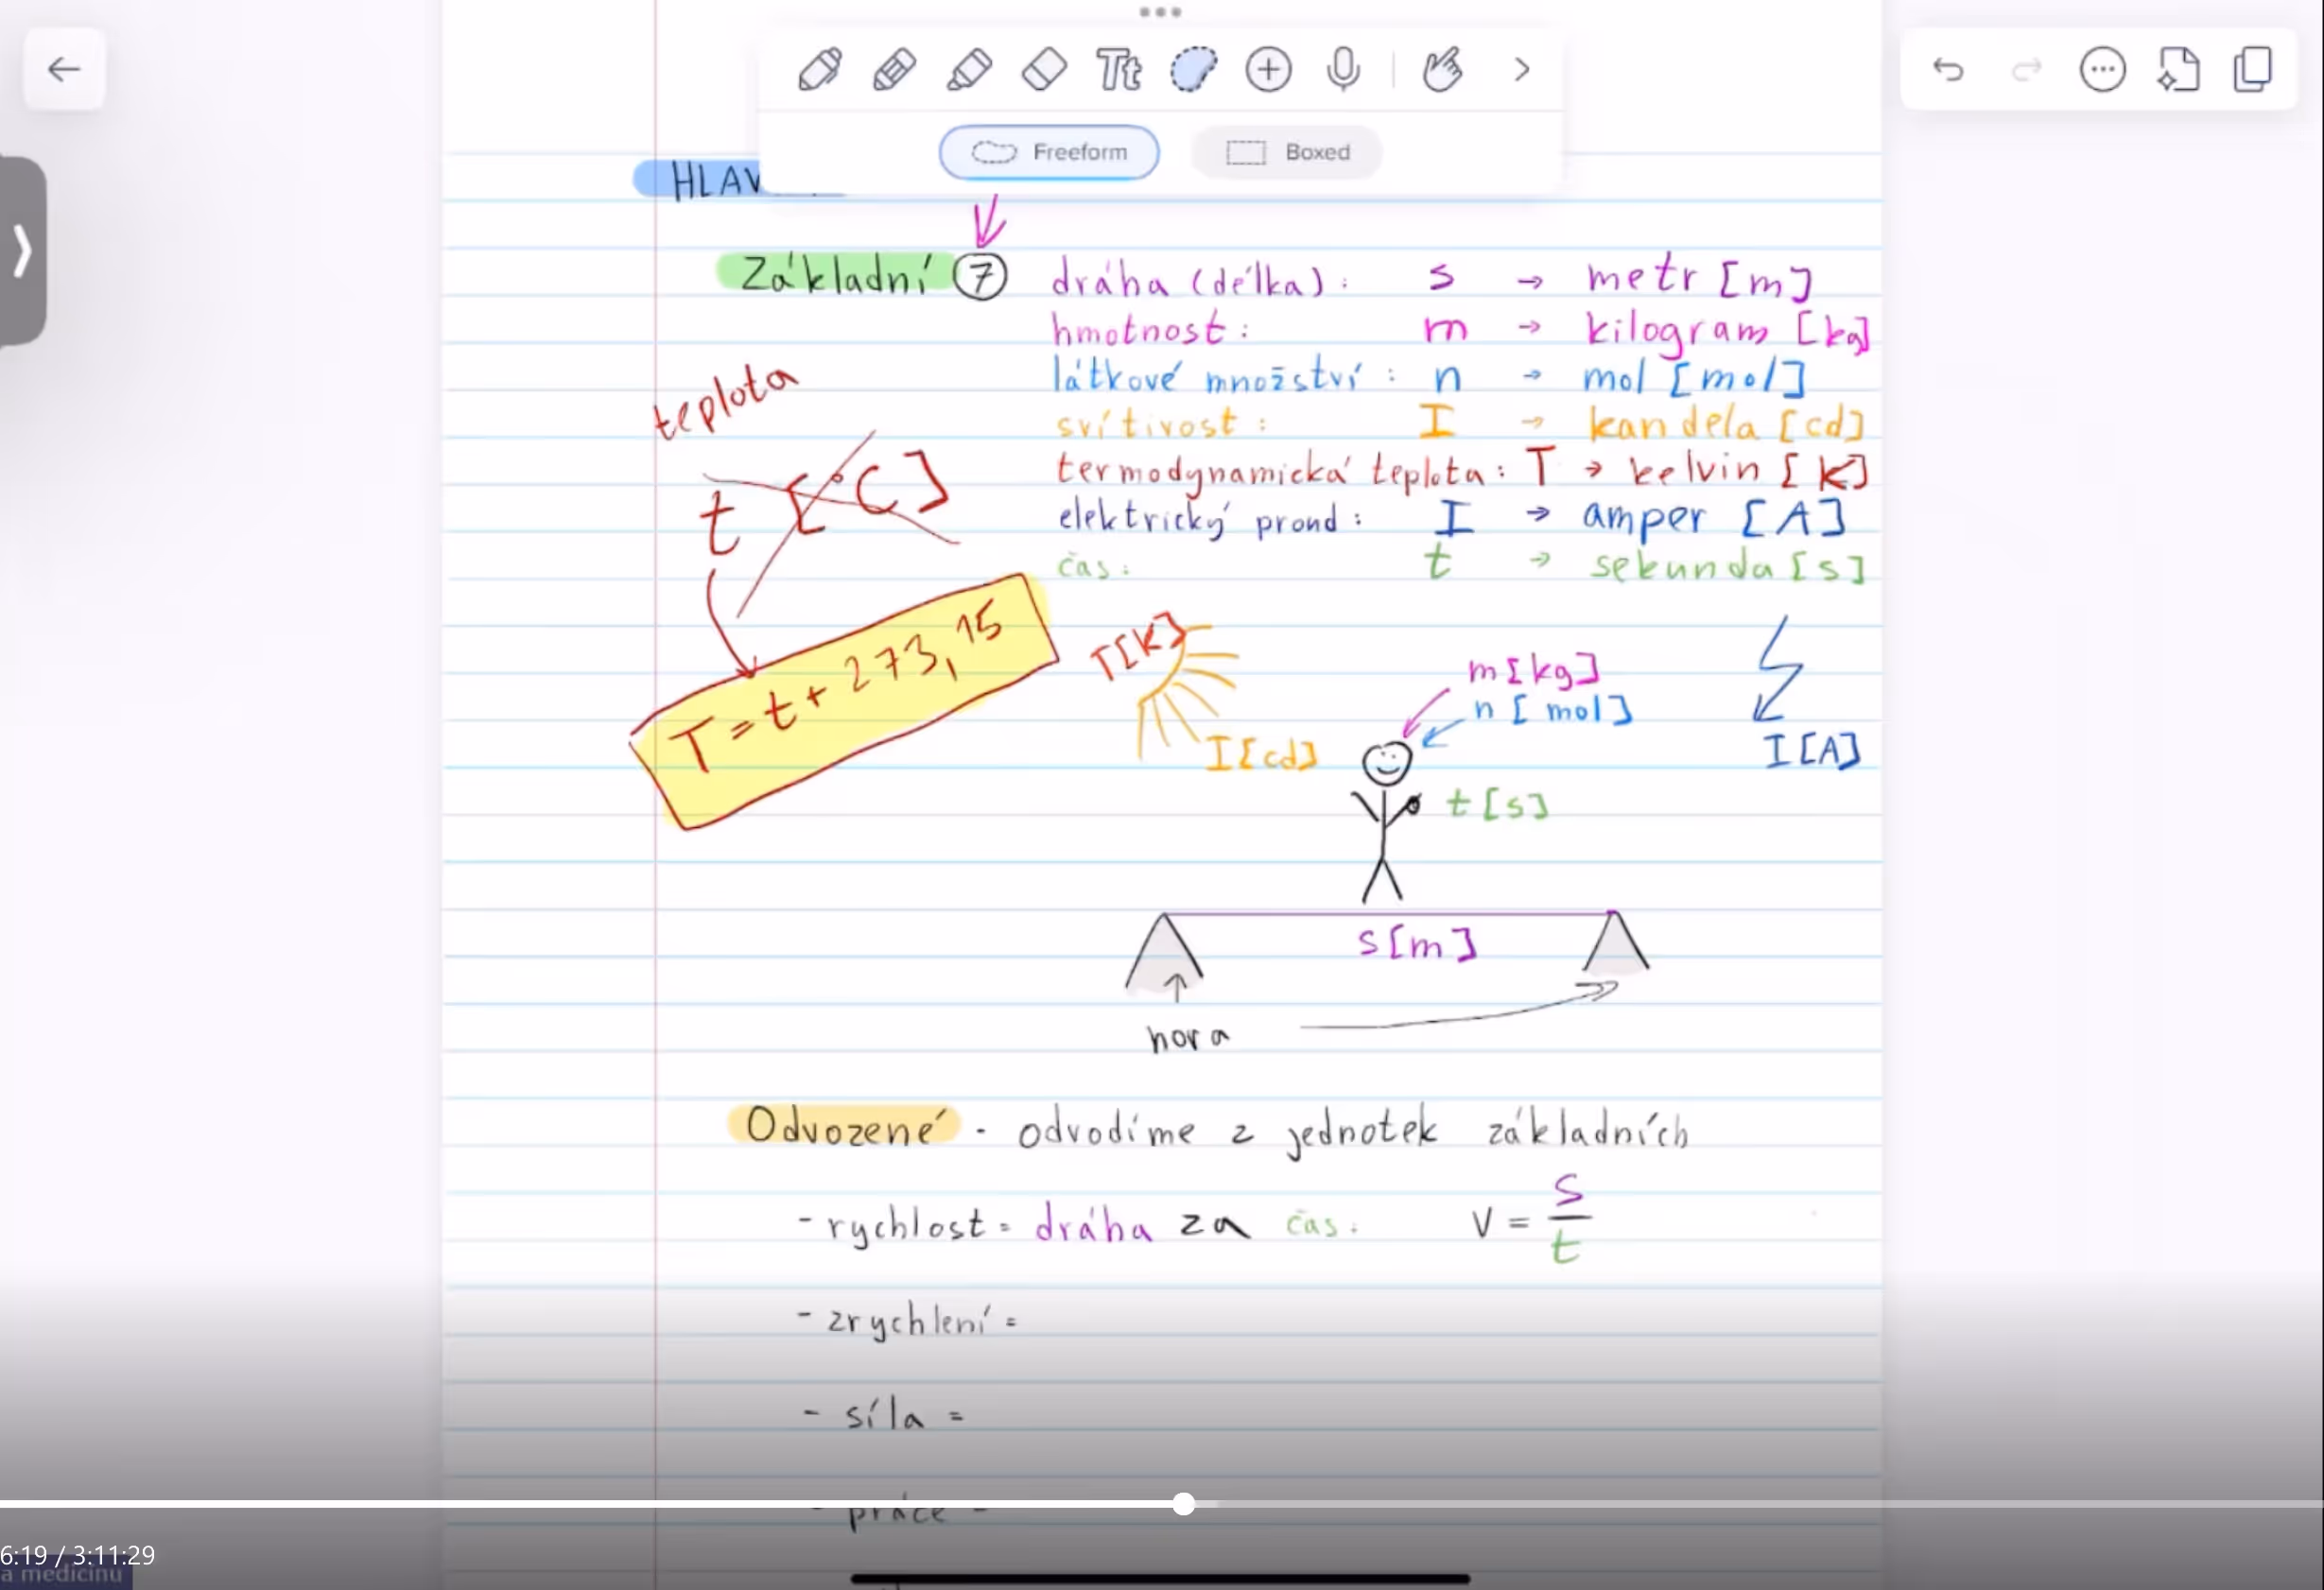 Freeform Boxed
HLAV
Základní 7 dráha (délka): s → metr [m]
hmotnost: m → kilogram [kg]
látkové množství: n → mol [mol]
svítivost: I → kandela [cd]
termodynamická teplota: T → kelvin [K]
elektrický proud: I → amper [A]
čas: t → sekunda [s]
teplota
t [°C]
T = t + 273,15
T[K]
I[cd]
m[kg]
n[mol]
t[s]
I[A]
s[m]
hora
Odvozené - odvodíme z jednotek základních
- rychlost = dráha za čas: v = s/t
- zrychlení =
- síla =
- práce =
6:19 / 3:11:29
a medicínu